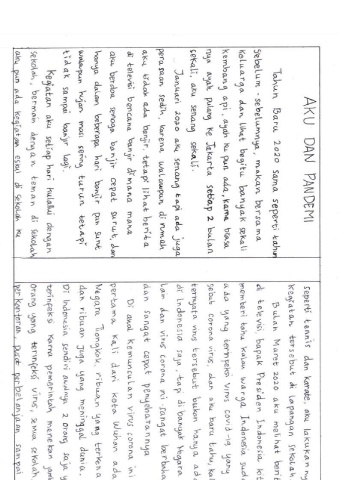 AKU DAN PANDEMI
Tahun Baru 2020 sama seperti tahun
sebelum-sebelumnya, makan bersama
keluarga dan lihat begitu banyak sekali
kembang api, ayah ku pun ada, karna biasa
nya ayah pulang ke Jakarta setiap 2 bulan
sekali, aku senang sekali.
Januari 2020 aku senang tapi ada juga
perasaan sedih, karena walaupun di rumah
aku tidak ada banjir tetapi lihat berita
di televisi bencana banjir dimana mana
aku berdoa semoga banjir cepat surut dan
hanya dalam beberapa hari banjir pun surut
walaupun hujan masi sering turun tetapi
tidak sampai banjir lagi
Kegiatan aku setiap hari mulai dengan
sekolah, bermain dengan teman di sekolah
aku pun ada kegiatan di sekolah ku
seperti tennis dan karate, aku lakukan
kegiatan tersebut di lapangan sekolah.
Bulan Maret 2020 aku melihat berita
di televisi, bapak Presiden Indonesia
memberi tahu kalau warga Indonesia
ada yang terinfeksi virus covid-19 yang
corona virus, dan aku baru tahu,
ternyata virus tersebut bukan hanya ada
di Indonesia saja, tapi di banyak negara
dan corona ini sangat
dan sangat cepat penyebarannya
Di awal kemunculan virus corona ini
pertama kali dari kota Wuhan
Negara Tiongkok, ribuan yang terkena
dan ribuan juga yang meninggal dunia.
Di Indonesia sendiri awalnya 2 orang saja
terinfeksi karna pemerintah menekan
orang yang terinfeksi virus, semua sekolah,
perkantoran, pusat perbelanjaan sampai